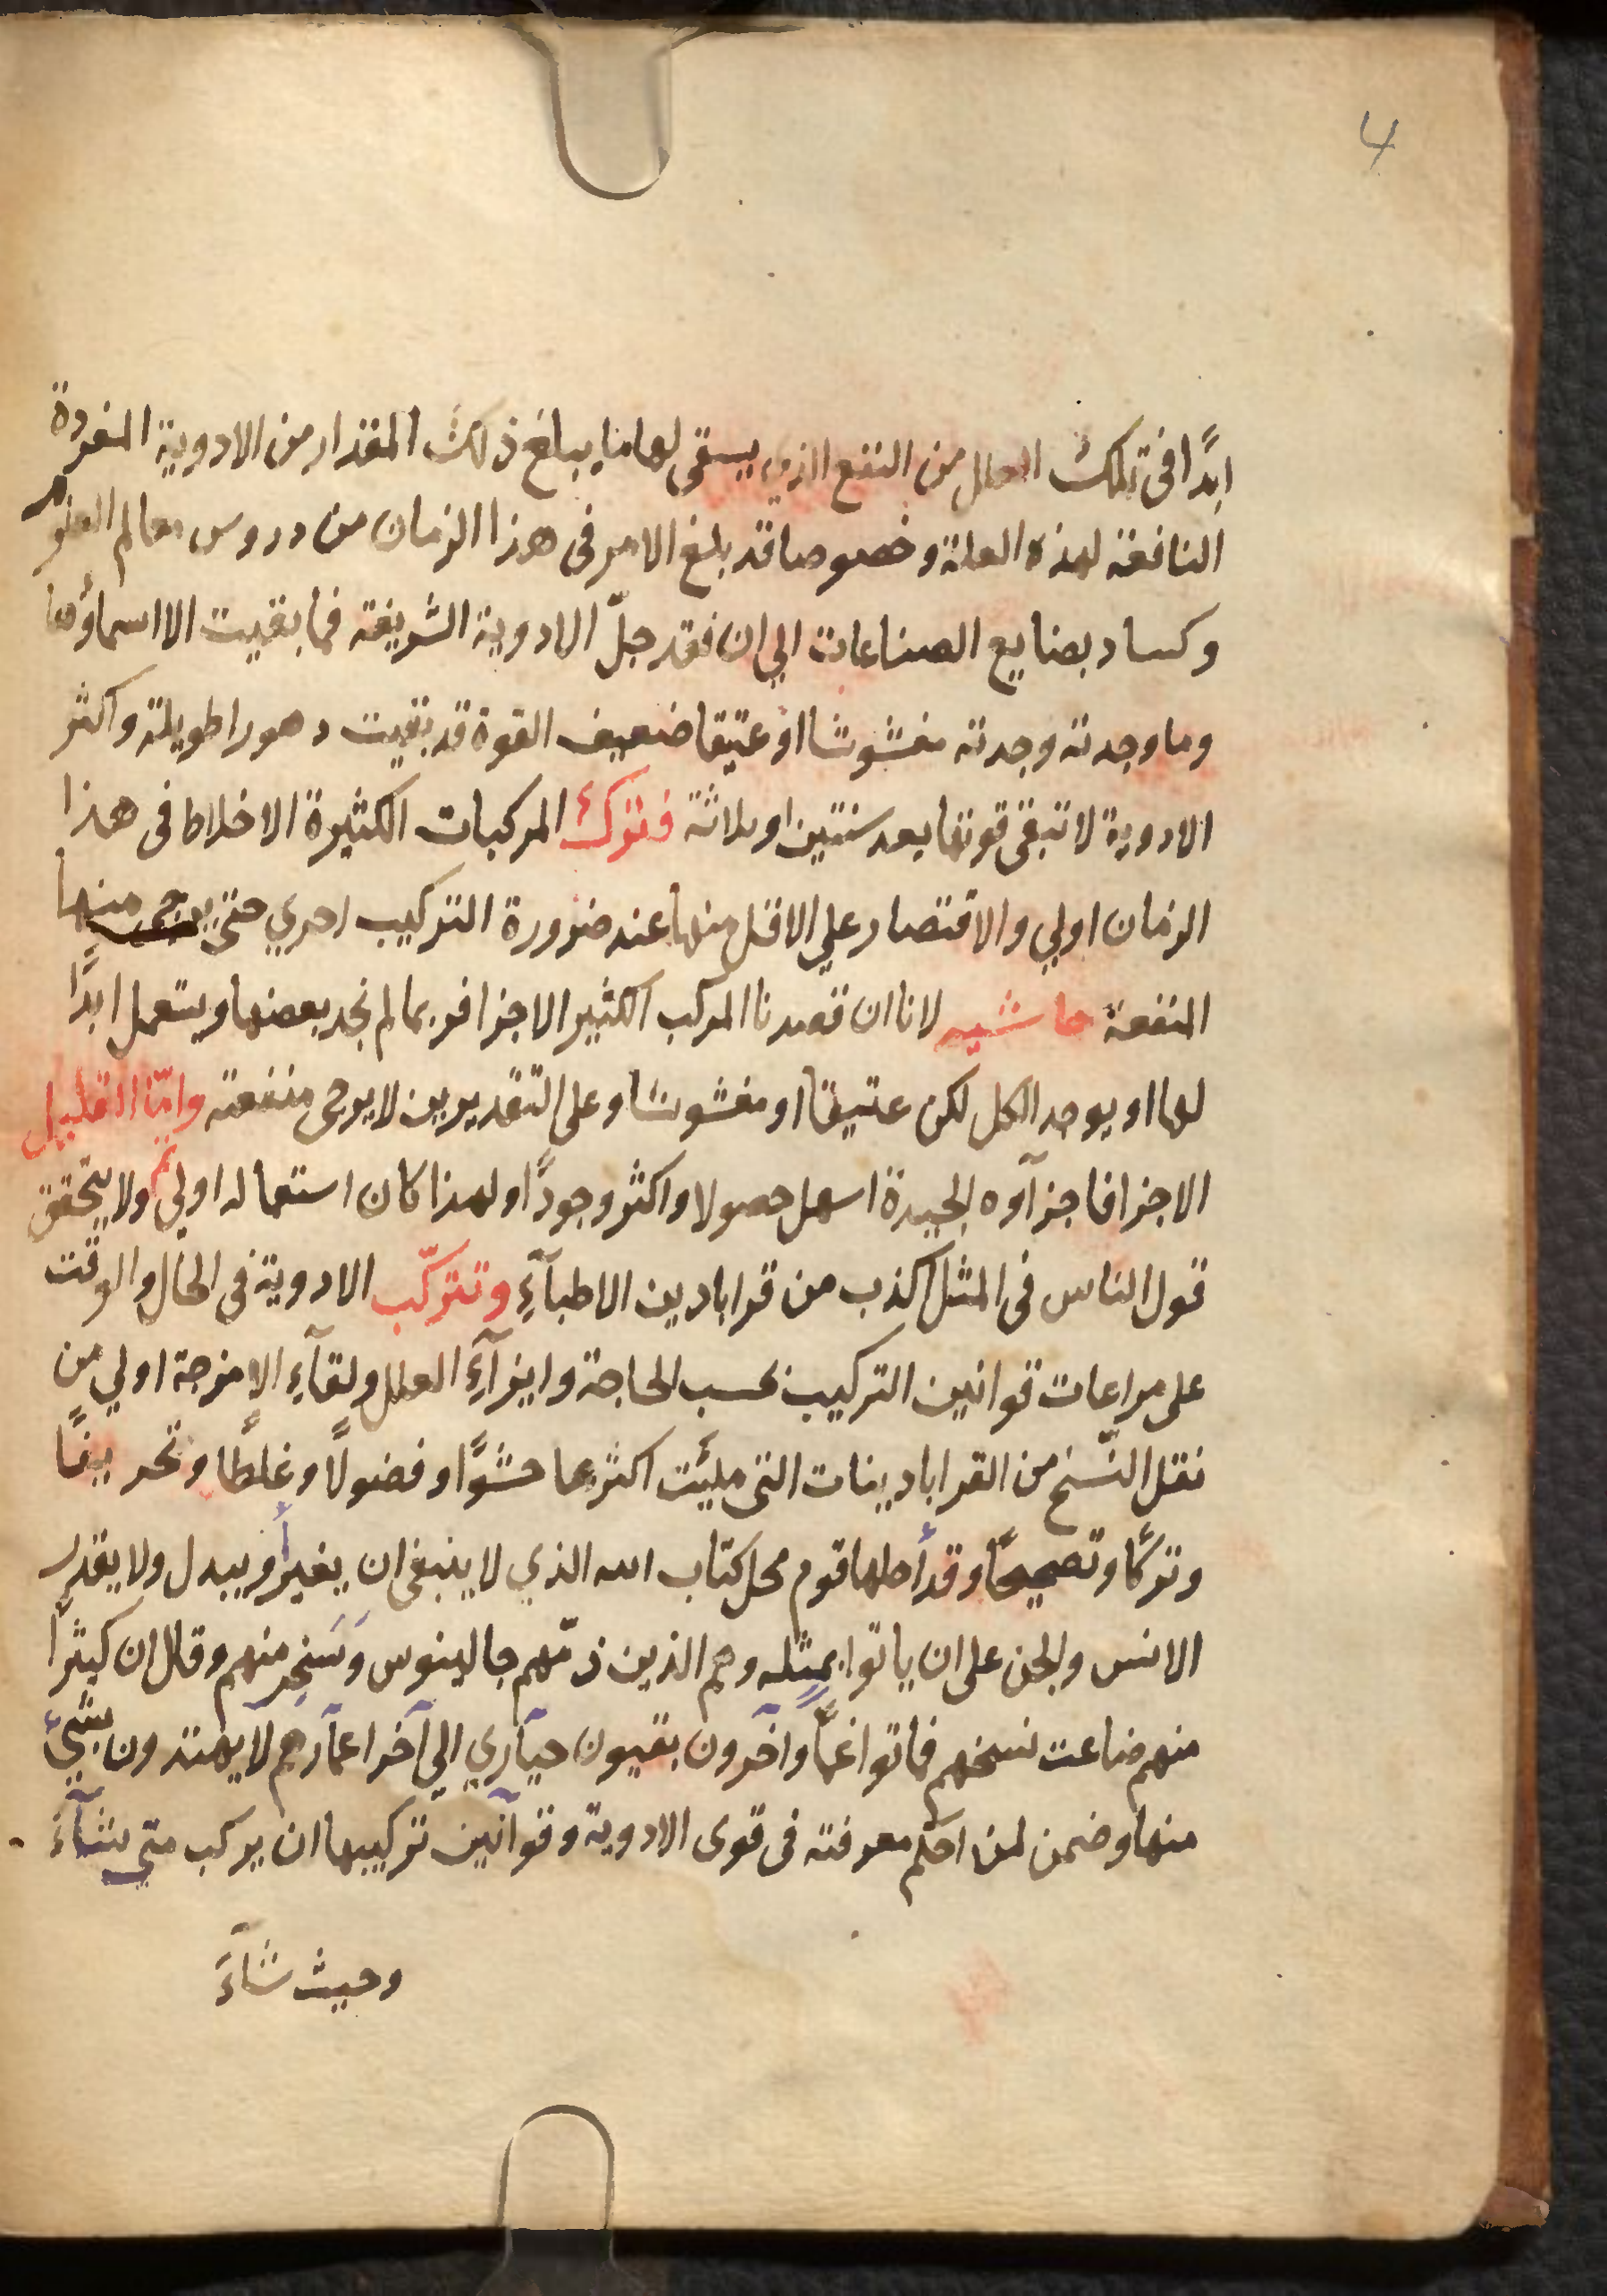 4
ابدًا فى تلك العلل من النفع الذي يستقى لها ما يبلغ ذلك المقدار من الادوية المفردة
النافعة لهذه العلة وخصوصا قد بلغ الامر فى هذا الزمان من دروس معالم العلوم
وكساد بضايع الصناعات الي ان فقد جلّ الادوية الشريفة فما بقيت الا اسماؤها
وما وجدته وجدته مغشوشا او عتيقا ضعيف القوة قد بقيت دهورا طويلة واكثر
الادوية لا تبقى قوتها بعد سنتين او ثلاثة فترك المركبات الكثيرة الاخلاط فى هذا
الزمان اولي والاقتصار علي الاقل منها عند ضرورة التركيب احري حتى يرجى منها
المنفعة حاشيه لانا ان قصدنا المركب الكثير الاجزا فربما لم نجد بعضها ويستعمل ابدًا
لها او يوجد الكل لكن عتيقا او مغشوشا وعلى التقديرين لا يرجى منفعته وامّا القليل
الاجزا فاجزآوه الجيدة اسهل حصولا واكثر وجودًا ولهذا كان استعماله اولي ثم ولا يتحقق
قول الناس فى المثل اكذب من قرابادين الاطبآءِ وتتركّب الادوية فى الحال والوقت
على مراعات قوانين التركيب بحسب الحاجة وايزآءِ العلل ولقآءِ الامزجة اولي من
نقل النّسخ من القراباديـنات التى ملئَت اكثرها حشوًا وفضولًا وغلطًا وتحريفًا
وتركًا وتصحيحًا وقد أحلها قوم محل كتاب الله الذي لا ينبغى ان يغير أو يبدل ولا يقدر
الانس والجن على ان ياتوا بمِثلِه وهم الذين ذمّهم جالينوس وَسَخِر منهم وقال ان كثيرًا
منهم ضاعت نسخهم فماتوا غمًّا وآخرون بقيون حيآري الي آخر اعمآرهم لا يهتدون بشئٍ
منها وضمن لمن احكم معرفته فى قوى الادوية وقوآنين تركيبها ان يركب متي يشآءُ
وحيث شآءَ